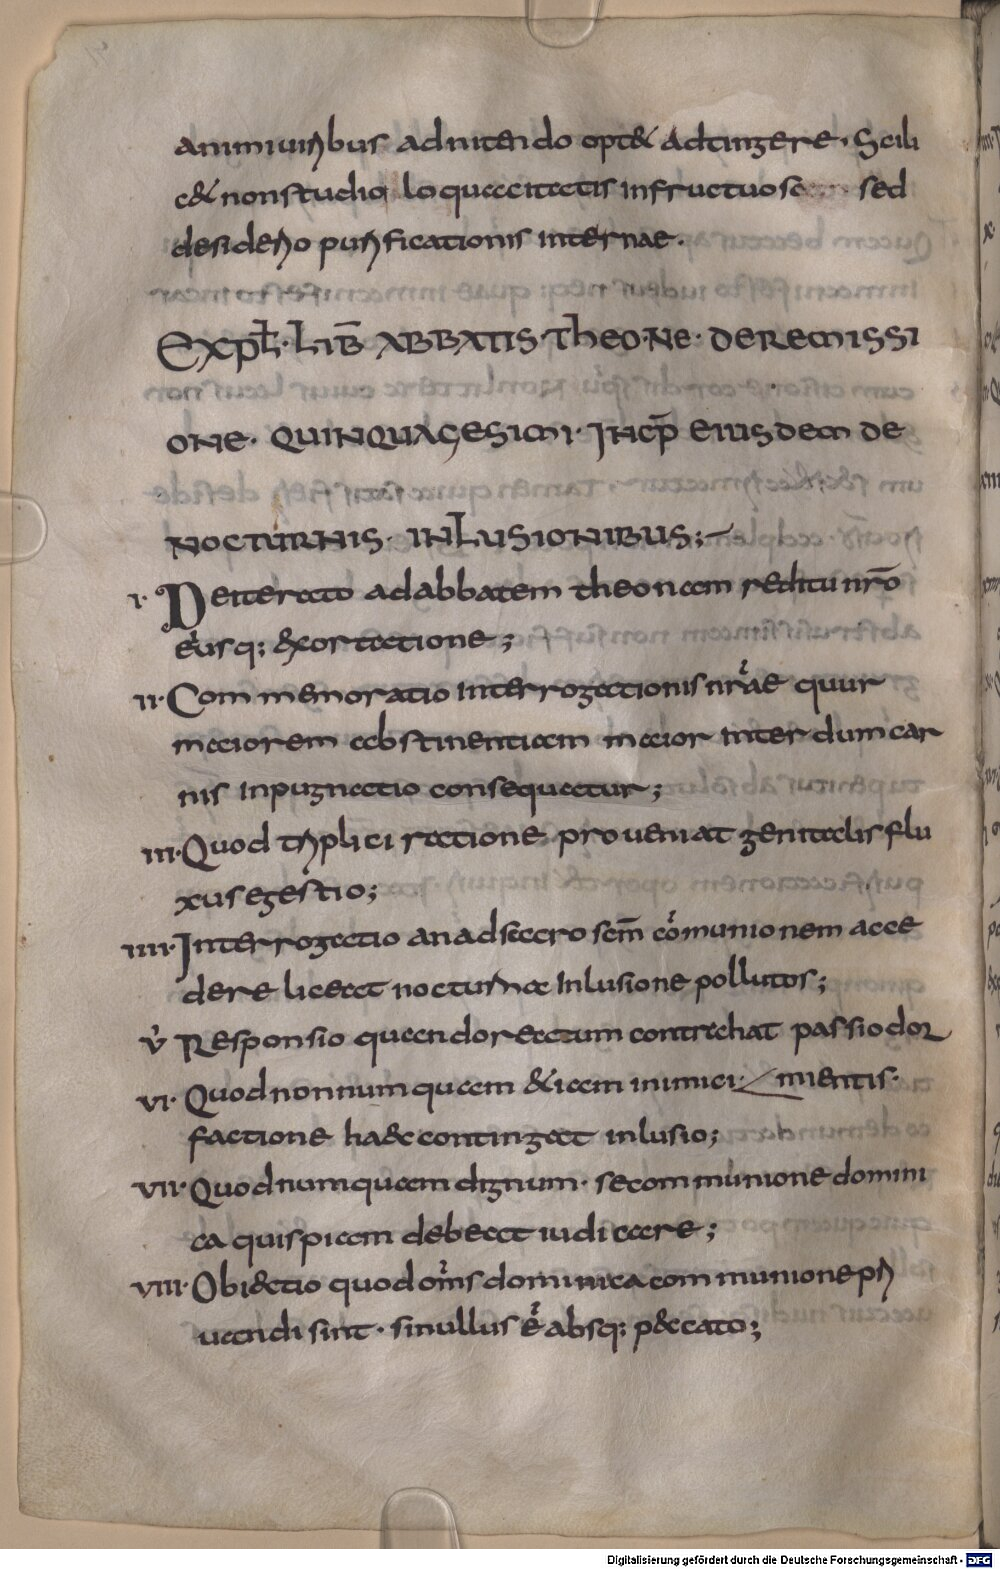 animi uiribus adnitendo opt& adtingere · Scili
c& non studio loquacitatis infructuose sed
desiderio purificationis internae ·
Expł · Lib̄ ABBATIS · Theone · De Remissi
one · Quinquagesimi · Incp̄ eiusdem de
nocturnis · inlusionibus ;
I · De iterato ad abbatem theonam reditu nr̄o
eiusq; &xortatione ;
II · Commemoratio interrogationis nr̄ae quur
maiorem abstinentiam maior interdum car
nis inpugnatio consequatur ;
III · Quod triplici ratione proueniat genitalis flu
xus egestio ;
IIII · Interrogatio an ad sacro scm̄ cōmunionem acce
dere liceat nocturna Inlusione pollutos ;
V Responsio quando reatum contrahat passio dor
VI · Quod nonnumquam &iam inimici · mientis ·
factione haec contingat inlusio ;
VII · Quod numquam dignum · se communione domini
ca quispiam debeat iudicare ;
VIII · Obiectio quod om̄s dominica communione pri
uandi sint · si nullus ē absq; p&ccato ;
Digitalisierung gefördert durch die Deutsche Forschungsgemeinschaft - DFG